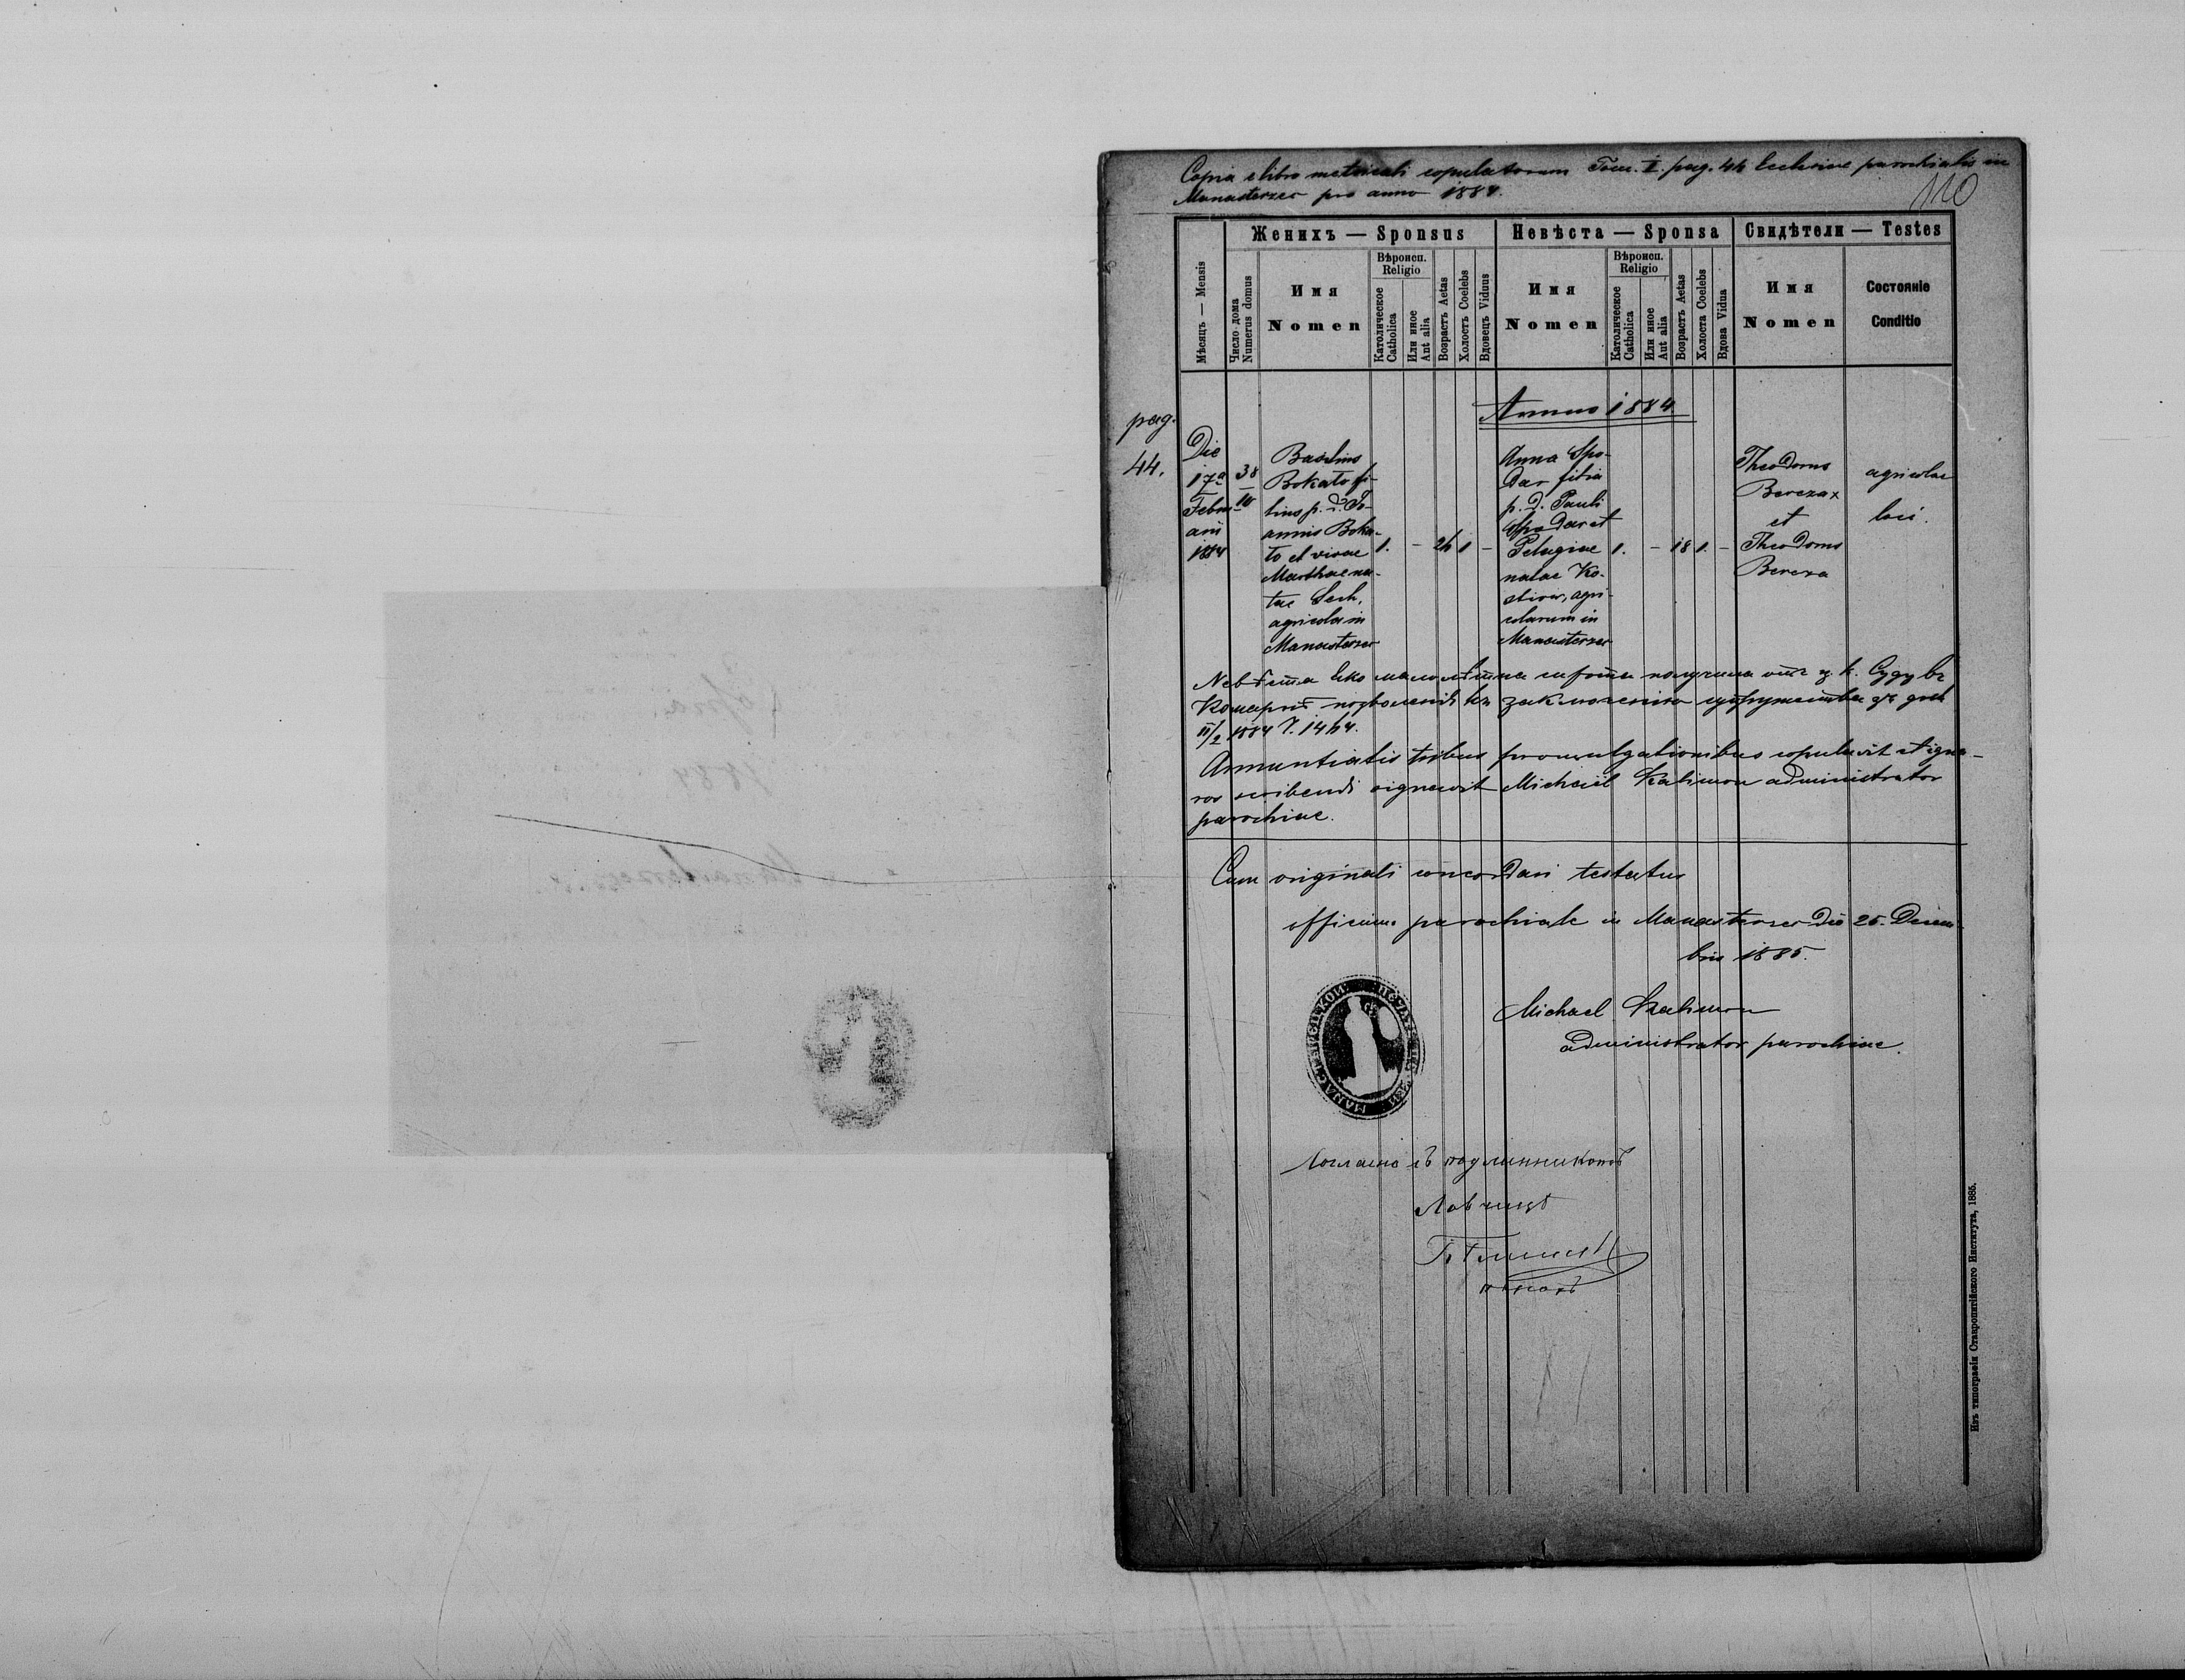 Copia e libro metricali copulatorum Tom. II. pag. 44 Ecclesiae parochialis in
Manasterzec pro anno 1884.
110
Женихъ — Sponsus
Невѣста — Sponsa
Свидѣтели — Testes
Мѣсяцъ — Mensis
Число дома
Numerus domus
Имя
Nomen
Вѣроисп.
Religio
Католическое
Catholica
Или иное
Aut alia
Возрастъ Aetas
Холостъ Coelebs
Вдовецъ Viduus
Имя
Nomen
Вѣроисп.
Religio
Католическое
Catholica
Или иное
Aut alia
Возрастъ Aetas
Холоста Coelebs
Вдова Vidua
Имя
Nomen
Состояніе
Conditio
Annus 1884
pag.
44.
Die
17a
Febru
arii
1884
38
10
Basilius
Bokało fi-
lius p. d. Jo-
annis Boka-
ło et vivae
Marthae na-
tae Lech,
agricola in
Manasterzec
1. - 24 1 -
Anna Spo-
dar filia
p. d. Pauli
Spodar et
Pelagiae
natae Ko-
stiow, agri-
colarum in
Manasterzec
1. - 18 1. -
Theodorus
Bereza x
et
Theodorus
Bereza
agricolae
loci.
Невѣста яко малолѣтна сирота получила отъ ц. к. Суду въ
Комарнѣ позволеніе къ заключенію супружества дня
11/2 1884 Ч. 1444.
Annuntiatis tribus promulgationibus copulavit et igna-
ros scribendi signavit Michael Kalimon administrator
parochiae.
Cum originali concordari testatur
Officium parochiale in Manasterzec die 25. Decem-
bris 1885.
Michael Kalimon
administrator parochiae.
Согласно съ подлинникомъ
Изъ типографіи Ставропигійского Института, 1885.